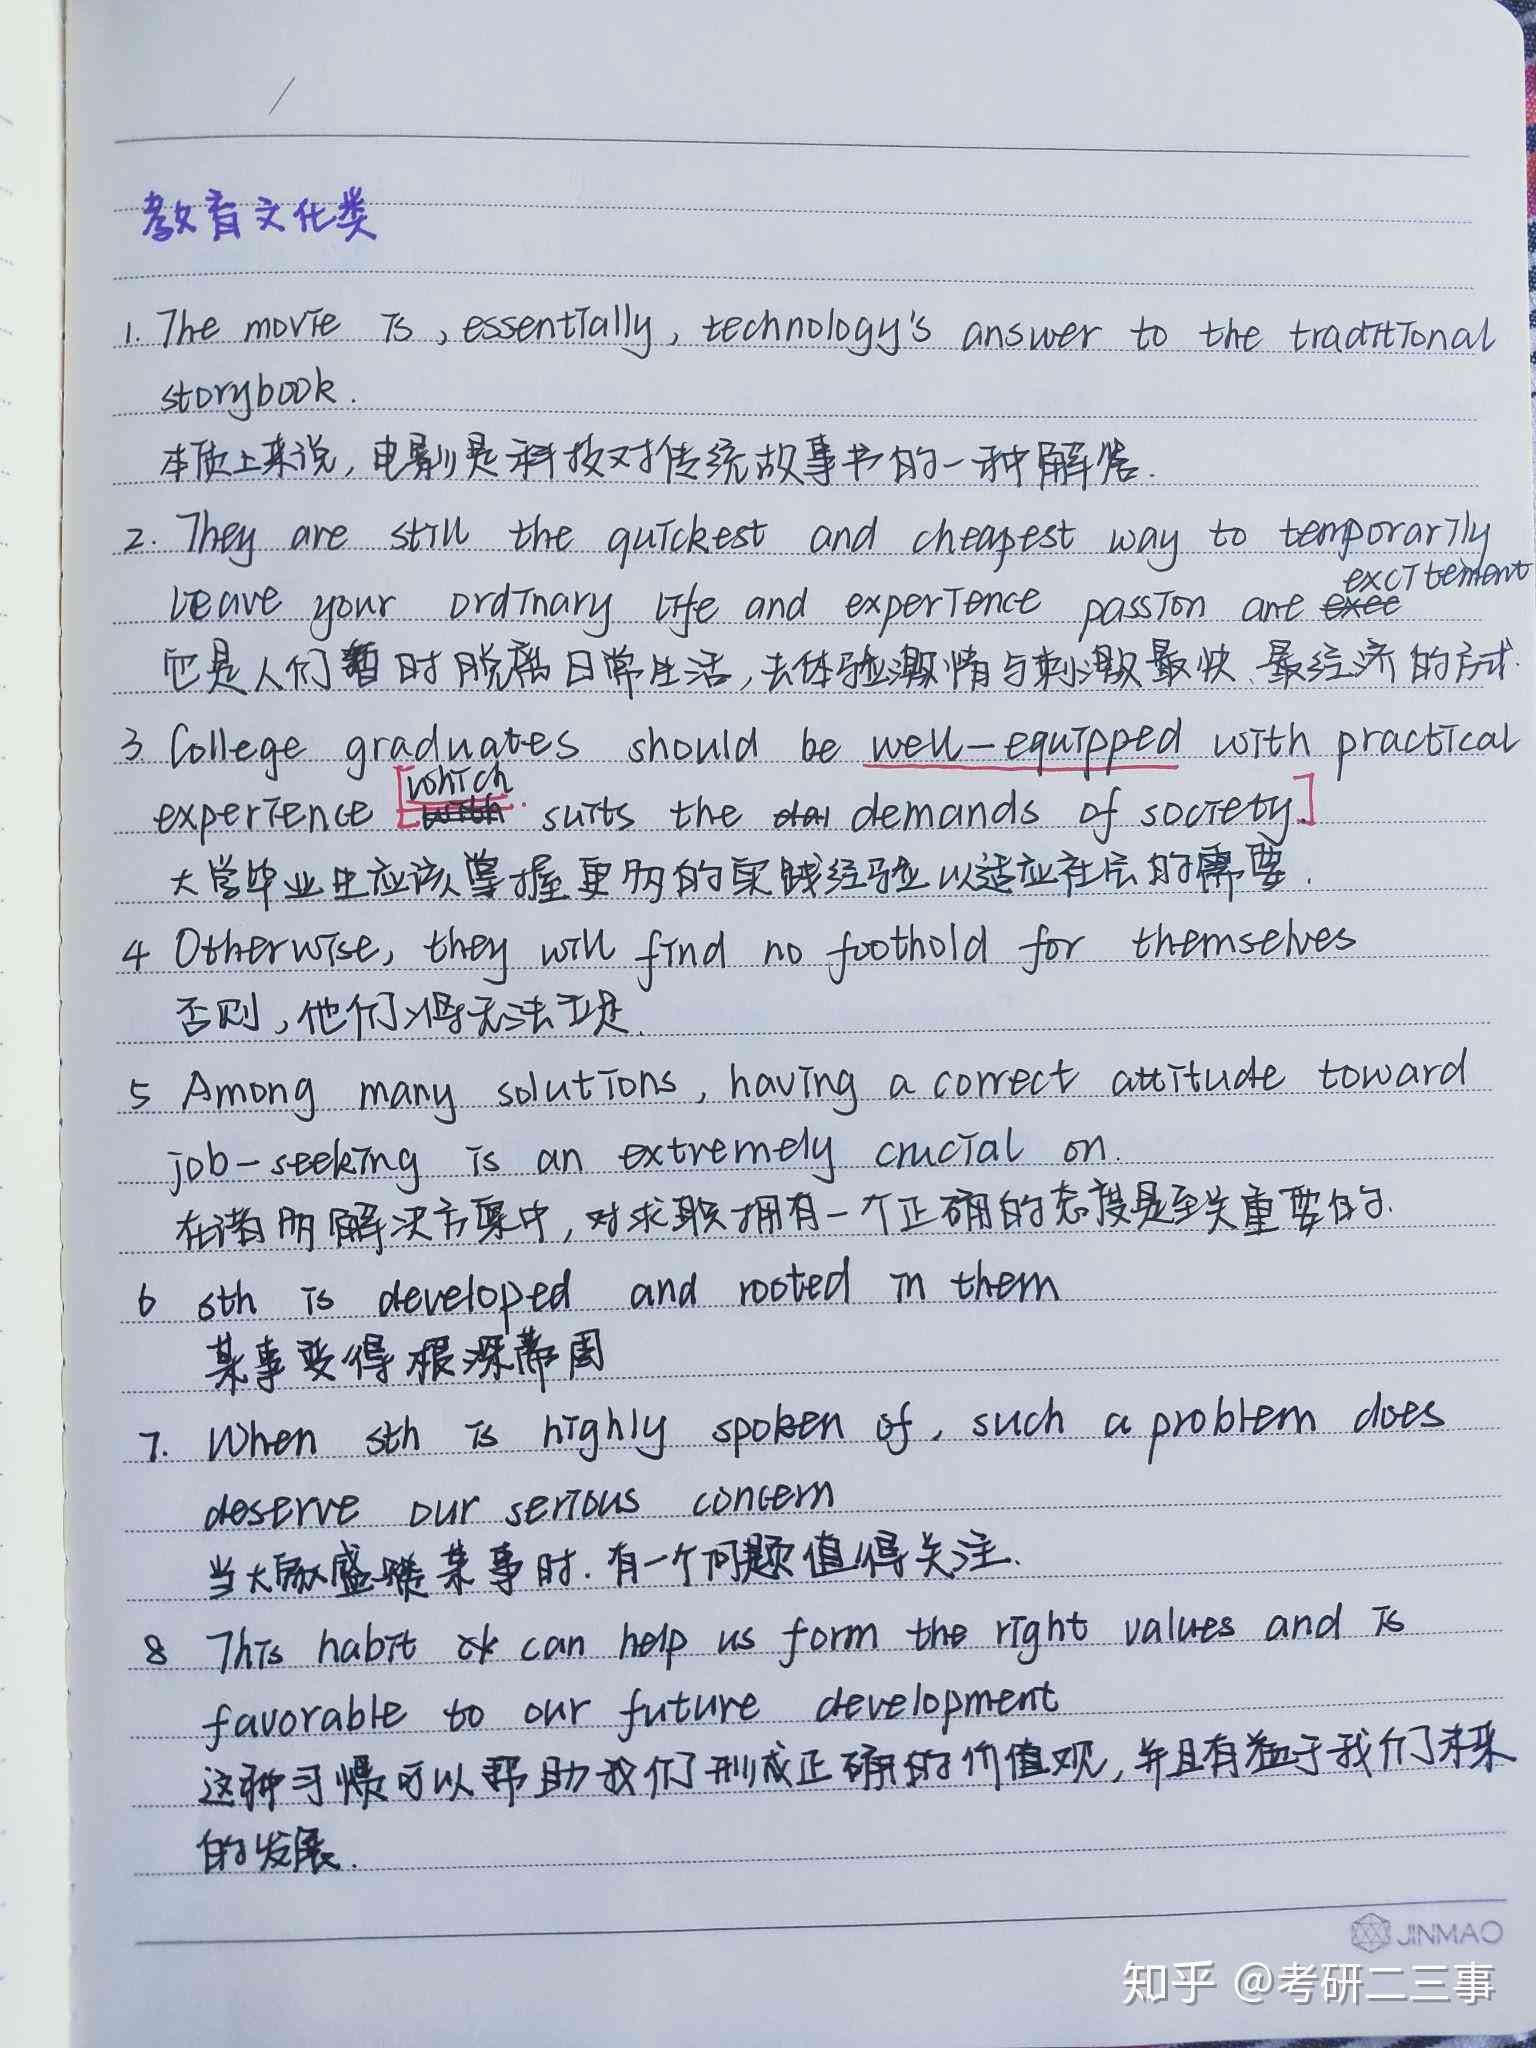 教育文化类
1. The movie is, essentially, technology's answer to the traditional
storybook.
本质上来说,电影是科技对传统故事书的一种解答.
2. They are still the quickest and cheapest way to temporarily
excitement
leave your ordinary life and experience passion are
它是人们暂时脱离日常生活,去体验激情与刺激最快、最经济的方式.
3. College graduates should be well-equipped with practical
which
experience [with suits the demands of society.]
大学毕业生应该掌握更多的实践经验以适应社会的需要.
4 Otherwise, they will find no foothold for themselves
否则,他们将无法立足.
5 Among many solutions, having a correct attitude toward
job-seeking is an extremely crucial on.
在诸多解决方案中,对求职拥有一个正确的态度是至关重要的.
6 sth is developed and rooted in them
某事变得根深蒂固
7. When sth is highly spoken of, such a problem does
deserve our serious concern
当大家盛赞某事时.有一个问题值得关注.
8 This habit can help us form the right values and is
favorable to our future development
这种习惯可以帮助我们形成正确的价值观,并且有益于我们未来
的发展.
JINMAO
知乎 @考研二三事